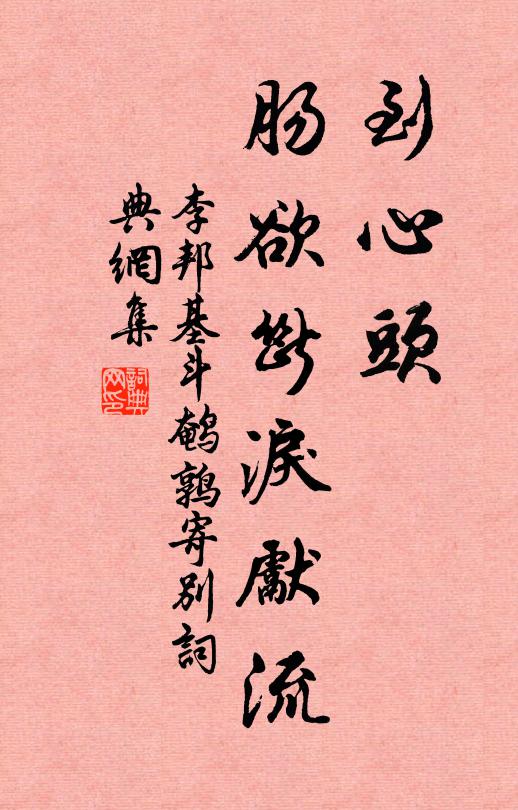 到心頭
腸欲斷淚獻流
李邦基斗鵪鶉寄別詞
典網集
詞典網印